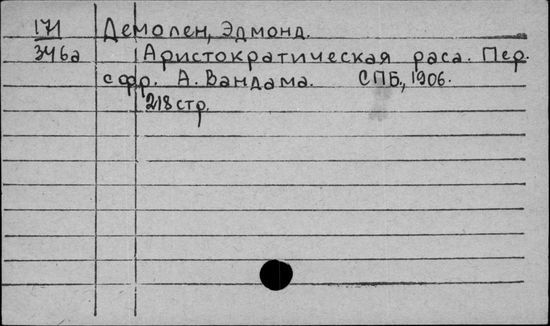 171 Демолен, Эдмонд.
346а Аристократическая раса. Пер.
с фр. А. Вандама. СПБ, 1906.
218 стр.